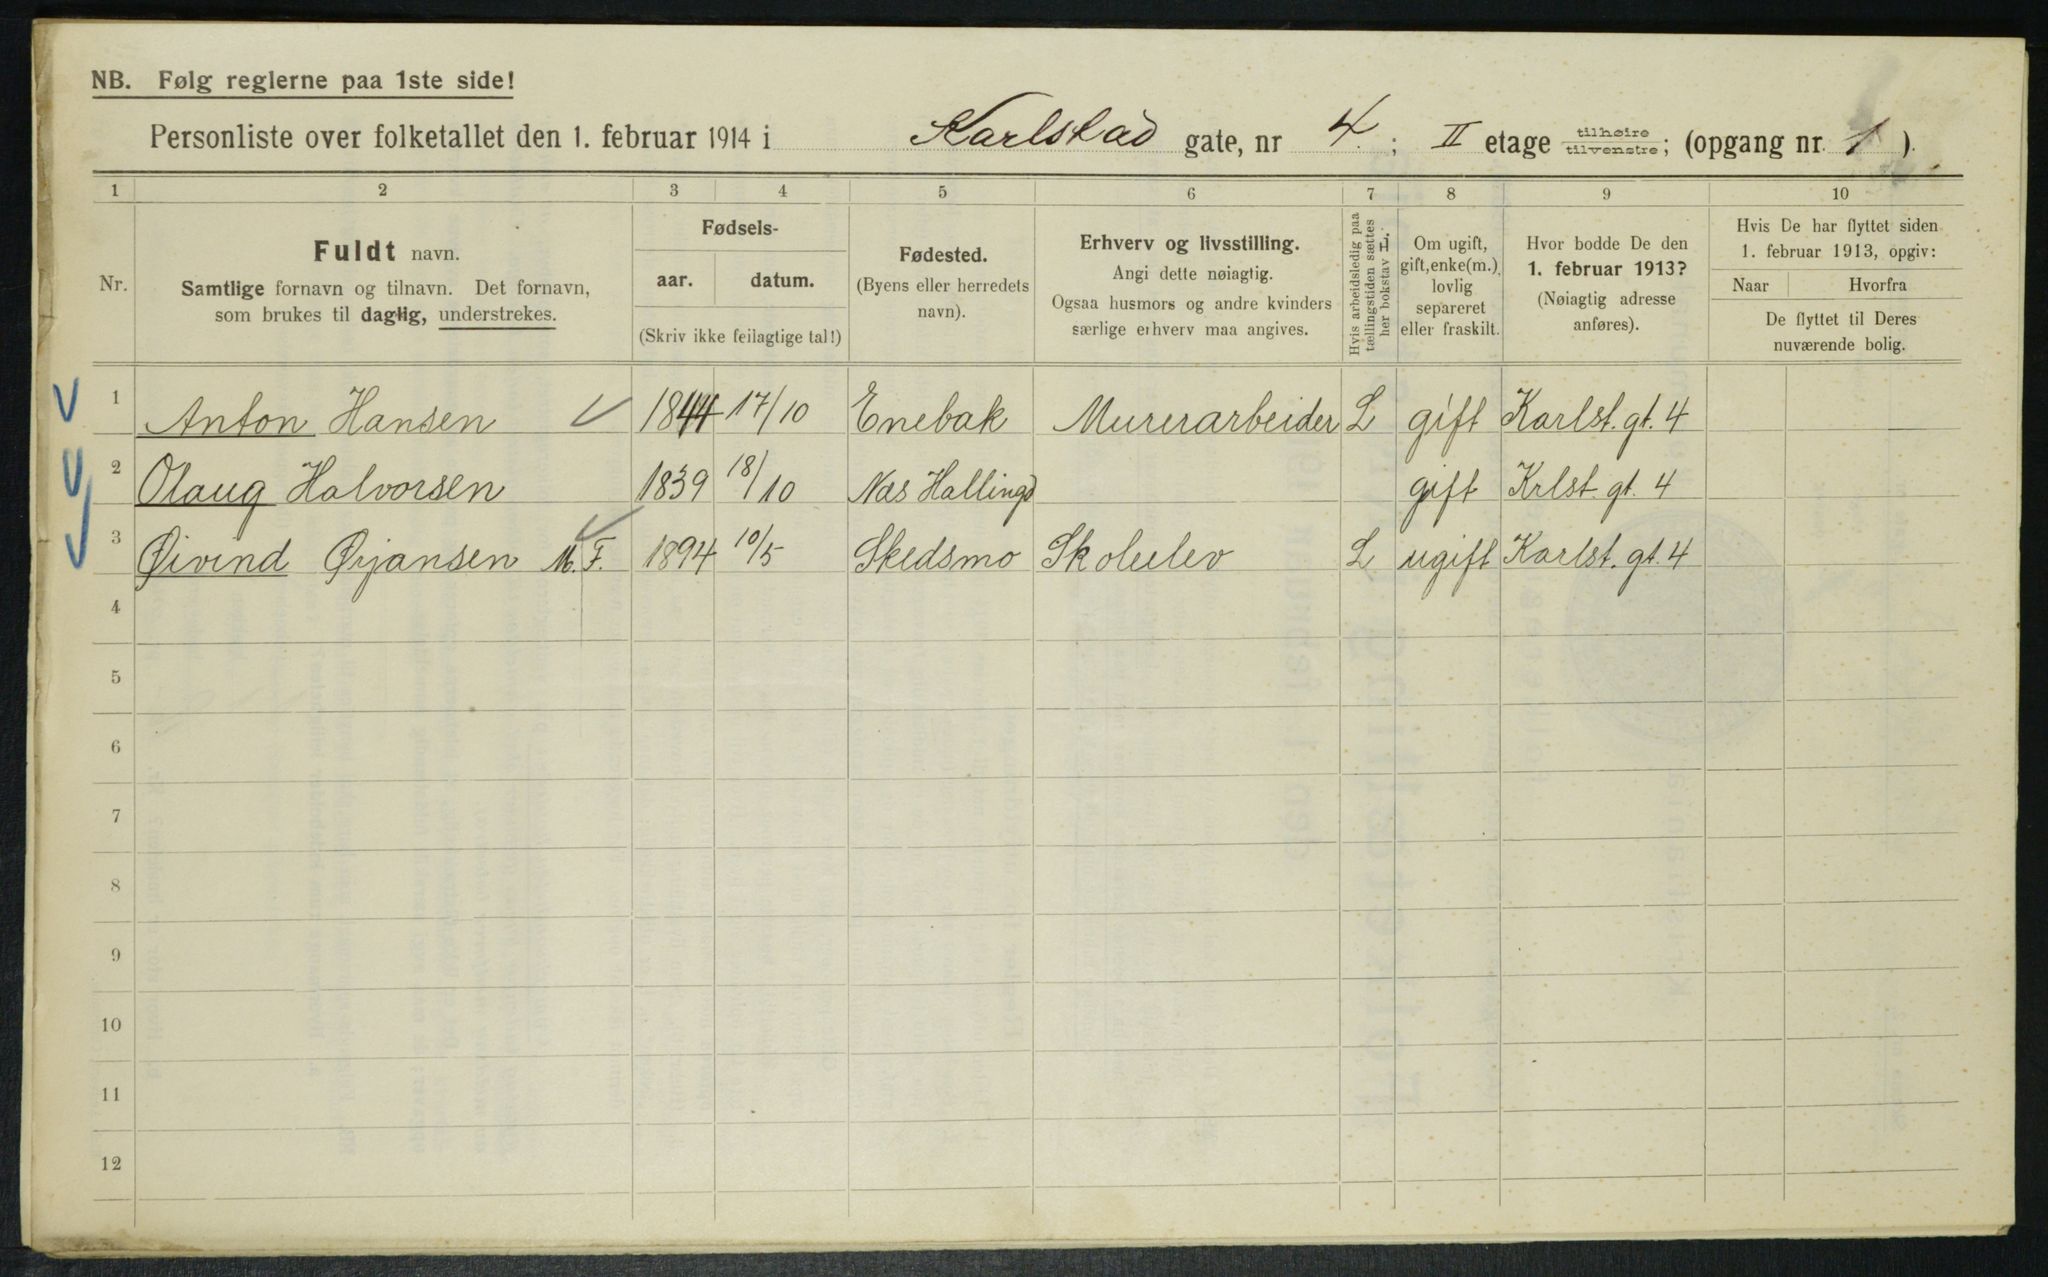 NB. Følg reglerne paa 1ste side!
Personliste over folketallet den 1. februar 1914 i Karlstad gate, nr 4. ; II etage tilhøire / tilvenstre; (opgang nr. 1 ).
1 2 3 4 5 6 7 8 9 10
Nr.
Fuldt navn.
Samtlige fornavn og tilnavn. Det fornavn,
som brukes til daglig, understrekes.
Fødsels-
aar. datum.
(Skriv ikke feilagtige tal!)
Fødested.
(Byens eller herredets
navn).
Erhverv og livsstilling.
Angi dette nøiagtig.
Ogsaa husmors og andre kvinders
særlige erhverv maa angives.
Hvis arbeidsledig paa
tællingstiden sættes
her bokstav L.
Om ugift,
gift, enke(m.),
lovlig
separeret
eller fraskilt.
Hvor bodde De den
1. februar 1913?
(Nøiagtig adresse
anføres).
Hvis De har flyttet siden
1. februar 1913, opgiv:
Naar Hvorfra
De flyttet til Deres
nuværende bolig.
1 Anton Hansen 1844 17/10 Enebak Murerarbeider L gift Karlst. gt. 4
2 Olaug Halvorsen 1839 18/10 Næs Hallingd gift Krlst. gt. 4
3 Øivind Ørjansen M. F. 1894 10/5 Skedsmo Skoleelev L ugift Karlst. gt. 4
4
5
6
7
8
9
10
11
12